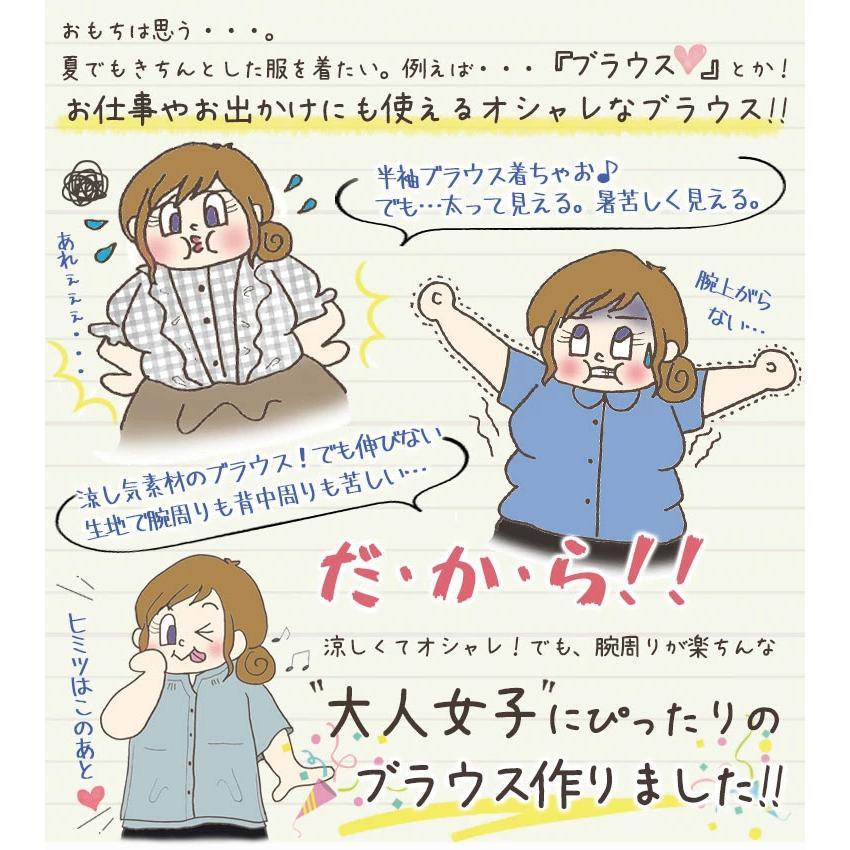 おもちは思う・・・。
夏でもきちんとした服を着たい。例えば・・・『ブラウス♥』とか！
お仕事やお出かけにも使えるオシャレなブラウス!!
半袖ブラウス着ちゃお♪
でも…太って見える。暑苦しく見える。
あれぇぇぇ・・・
腕上がら
ない…
涼し気素材のブラウス！でも伸びない
生地で腕周りも背中周りも苦しい…
だ・か・ら!!
ヒミツはこのあと♥
涼しくてオシャレ！でも、腕周りが楽ちんな
"大人女子"にぴったりの
ブラウス作りました!!